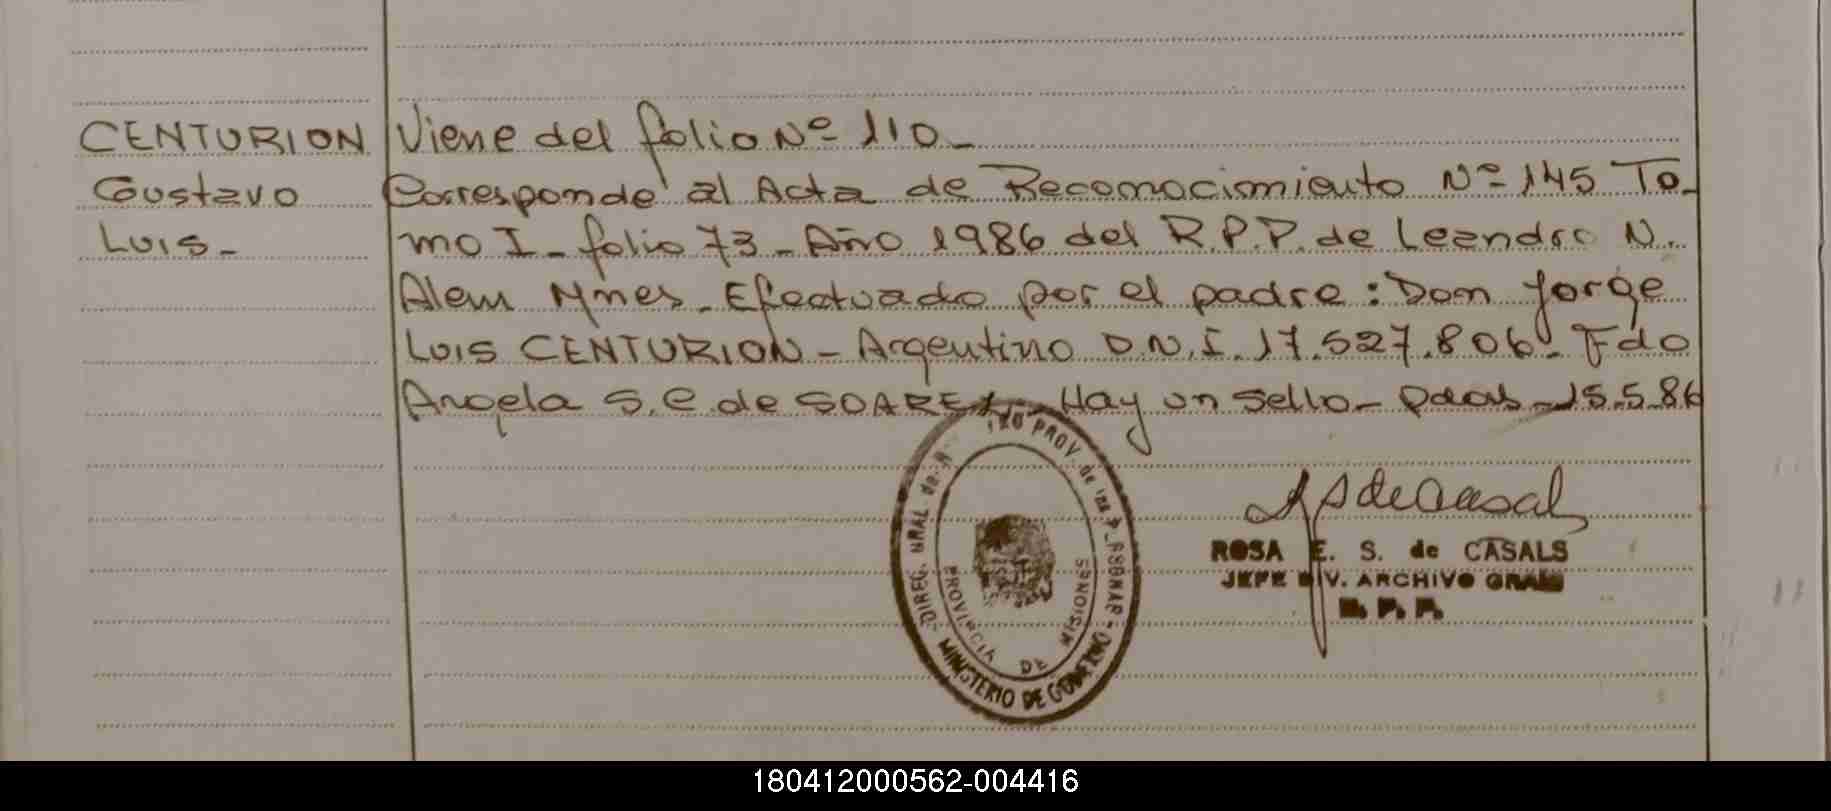 CENTURION
Gustavo
Luis-
Viene del folio Nº 110-
Corresponde al Acta de Reconocimiento Nº 145 To-
mo I- folio 73- Año 1986 del R.P.P. de Leandro N.
Alem Mnes- Efectuado por el padre: Don Jorge
Luis CENTURION- Argentino D.N.I. 17.527.806- Fdo
Angela S.C. de SOAREZ- Hay un sello- Pdas- 15.5.86
PROV. de las P
MINISTERIO DE GOBIERNO
PROVINCIA DE MISIONES
ROSA E. S. de CASALS
JEFE DIV. ARCHIVO GRAL
R. P. P.
180412000562-004416